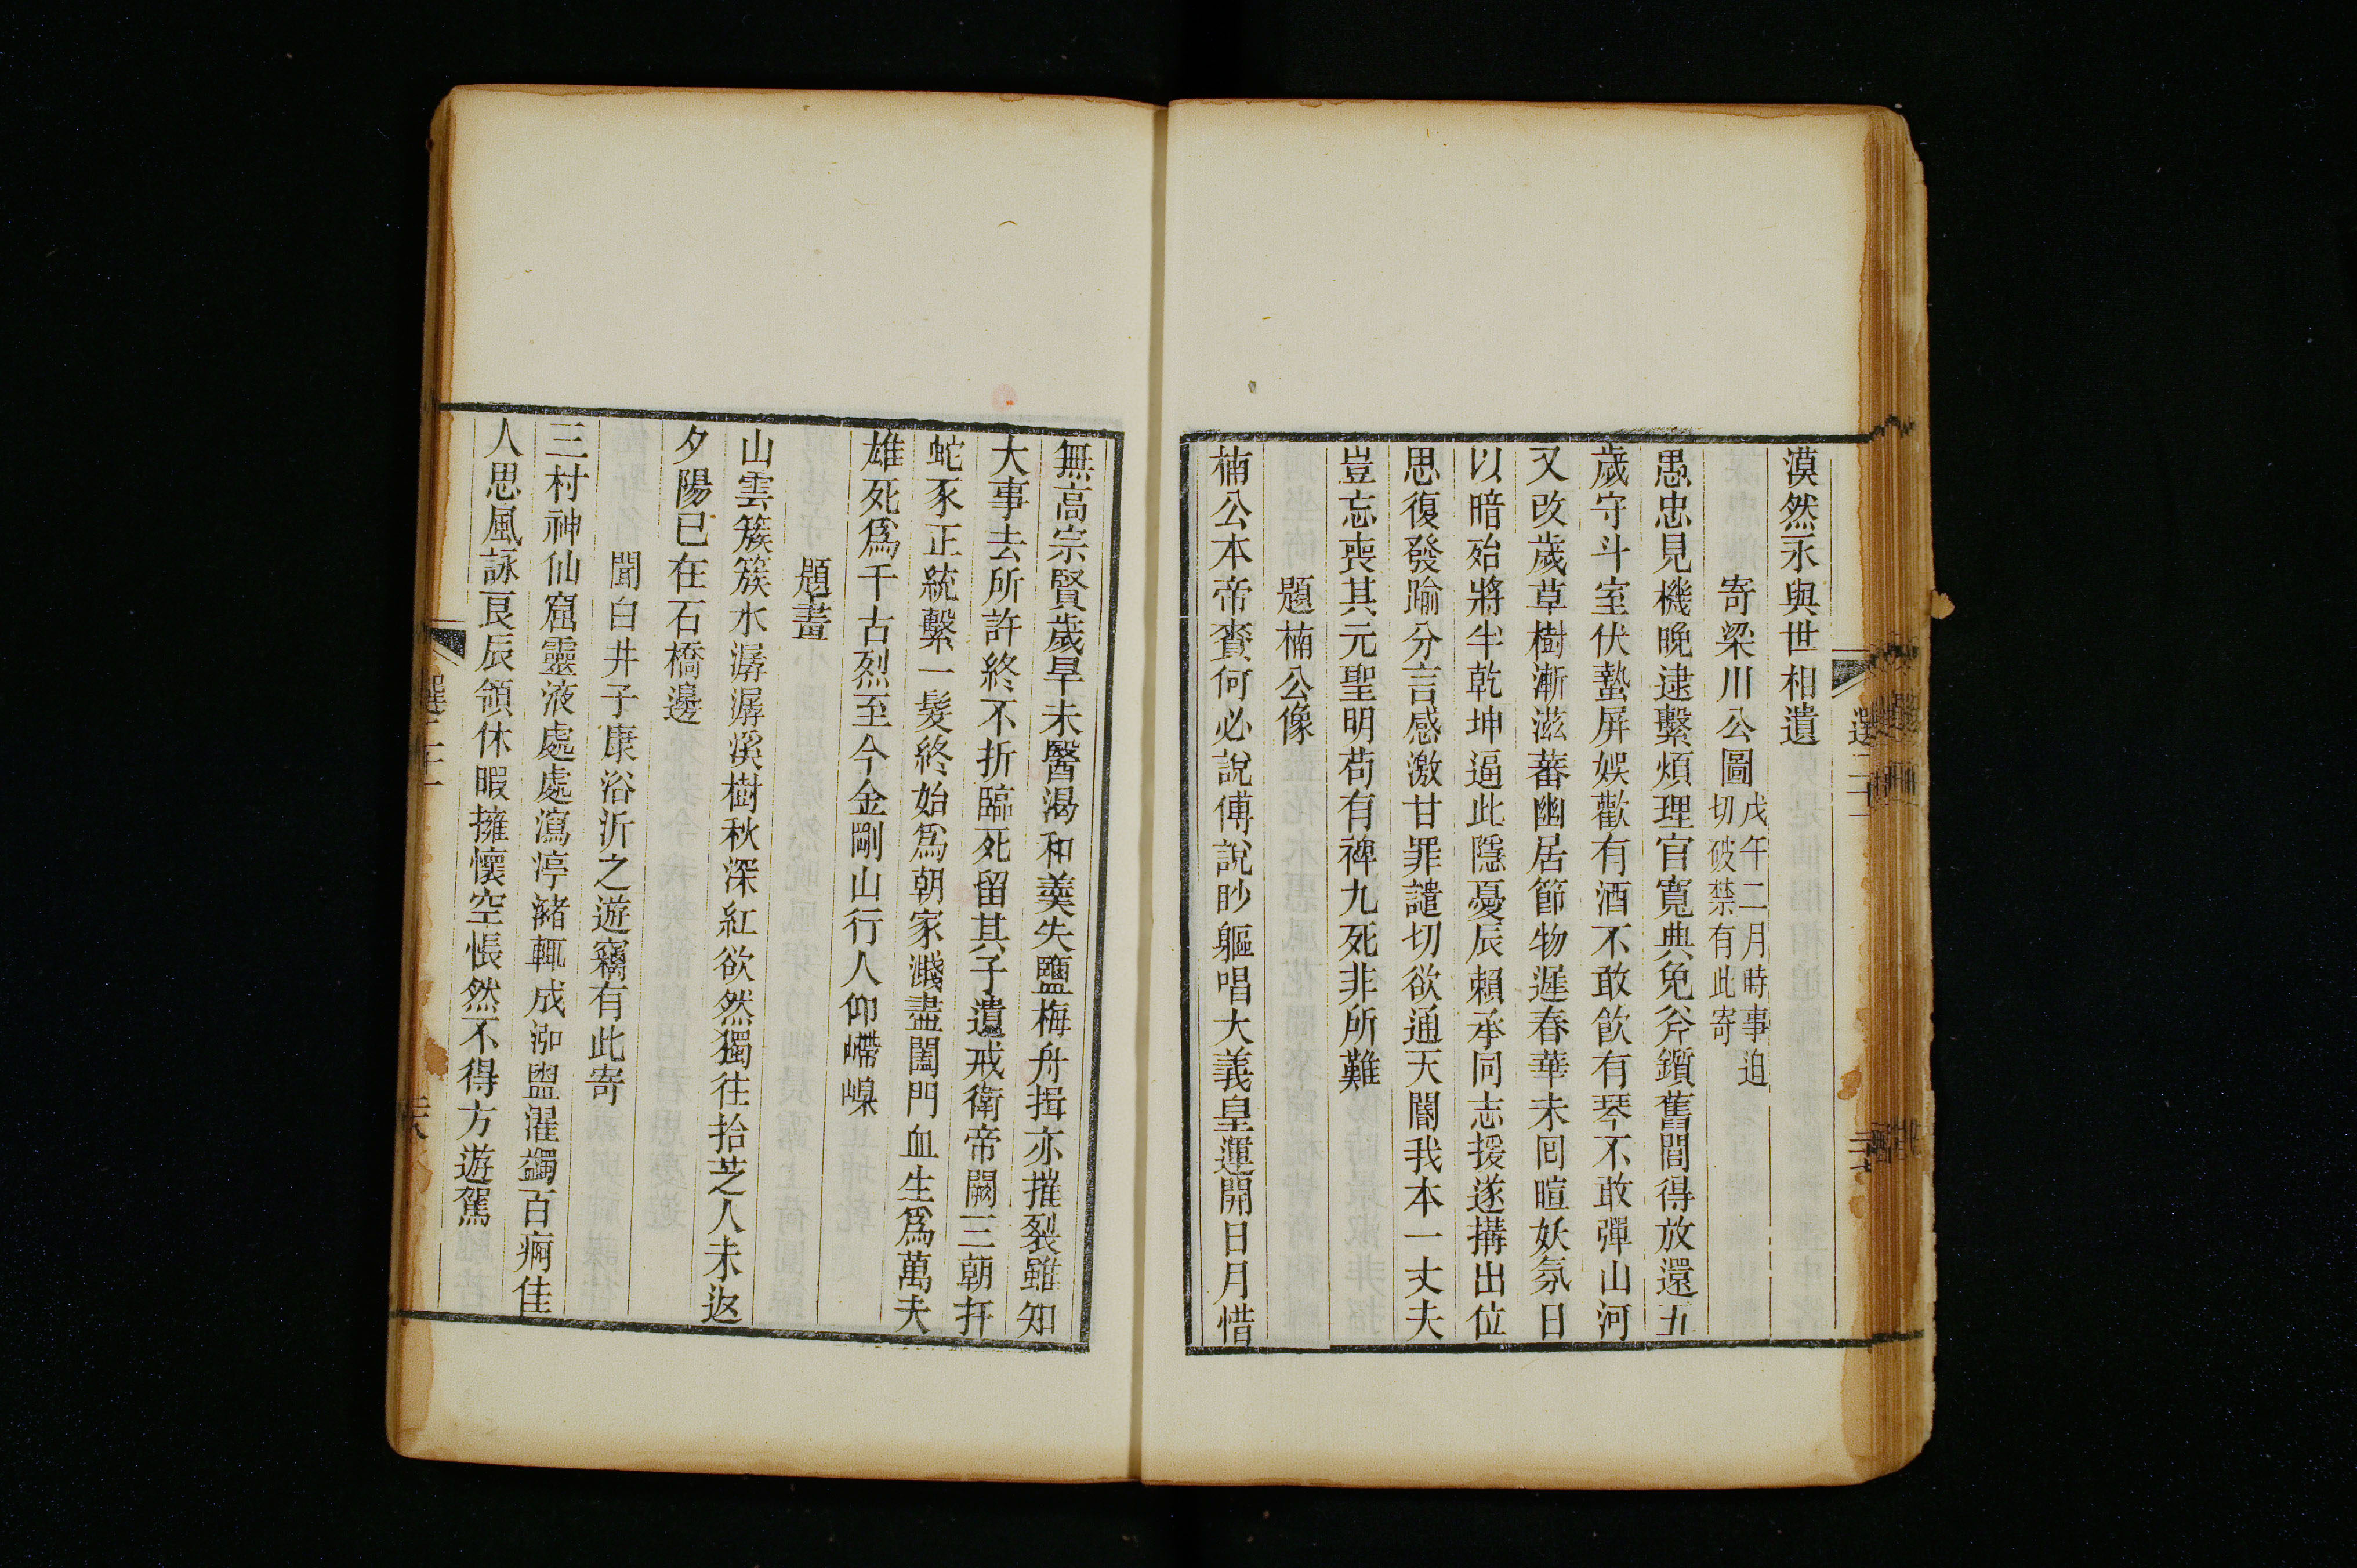 漠然永與世相遺
寄梁川公圖戊午二月時事迫切破禁有此寄
愚忠見機晚逮繫煩理官寬典免斧鑕舊閭得放還五
歲守斗室伏蟄屏娛歡有酒不敢飮有琴不敢彈山河
又改歲草樹漸滋蕃幽居節物遲春華未囘暄妖氛日
以暗殆將半乾坤逼此隱憂辰賴承同志援遂搆出位
思復發踰分言感激甘罪譴切欲通天閽我本一丈夫
豈忘喪其元聖明苟有裨九死非所難
題楠公像
楠公本帝賚何必說傅說眇軀唱大義皇運開日月惜
無高宗賢歲旱未醫渴和羹失鹽梅舟揖亦摧裂雖知
大事去所許終不折臨死留其子遺戒衛帝闕三朝扞
蛇豕正統繫一髮終始爲朝家濺盡闔門血生爲萬夫
雄死爲千古烈至今金剛山行人仰嵽嵲
題畫
山雲簇簇水潺潺溪樹秋深紅欲然獨往拾芝人未返
夕陽已在石橋邊
聞白井子康浴沂之遊竊有此寄
三村神仙窟靈液處處瀉渟瀦輒成泖盥濯蠲百痾佳
人思風詠良辰領休暇擁懷空悵然不得方遊駕